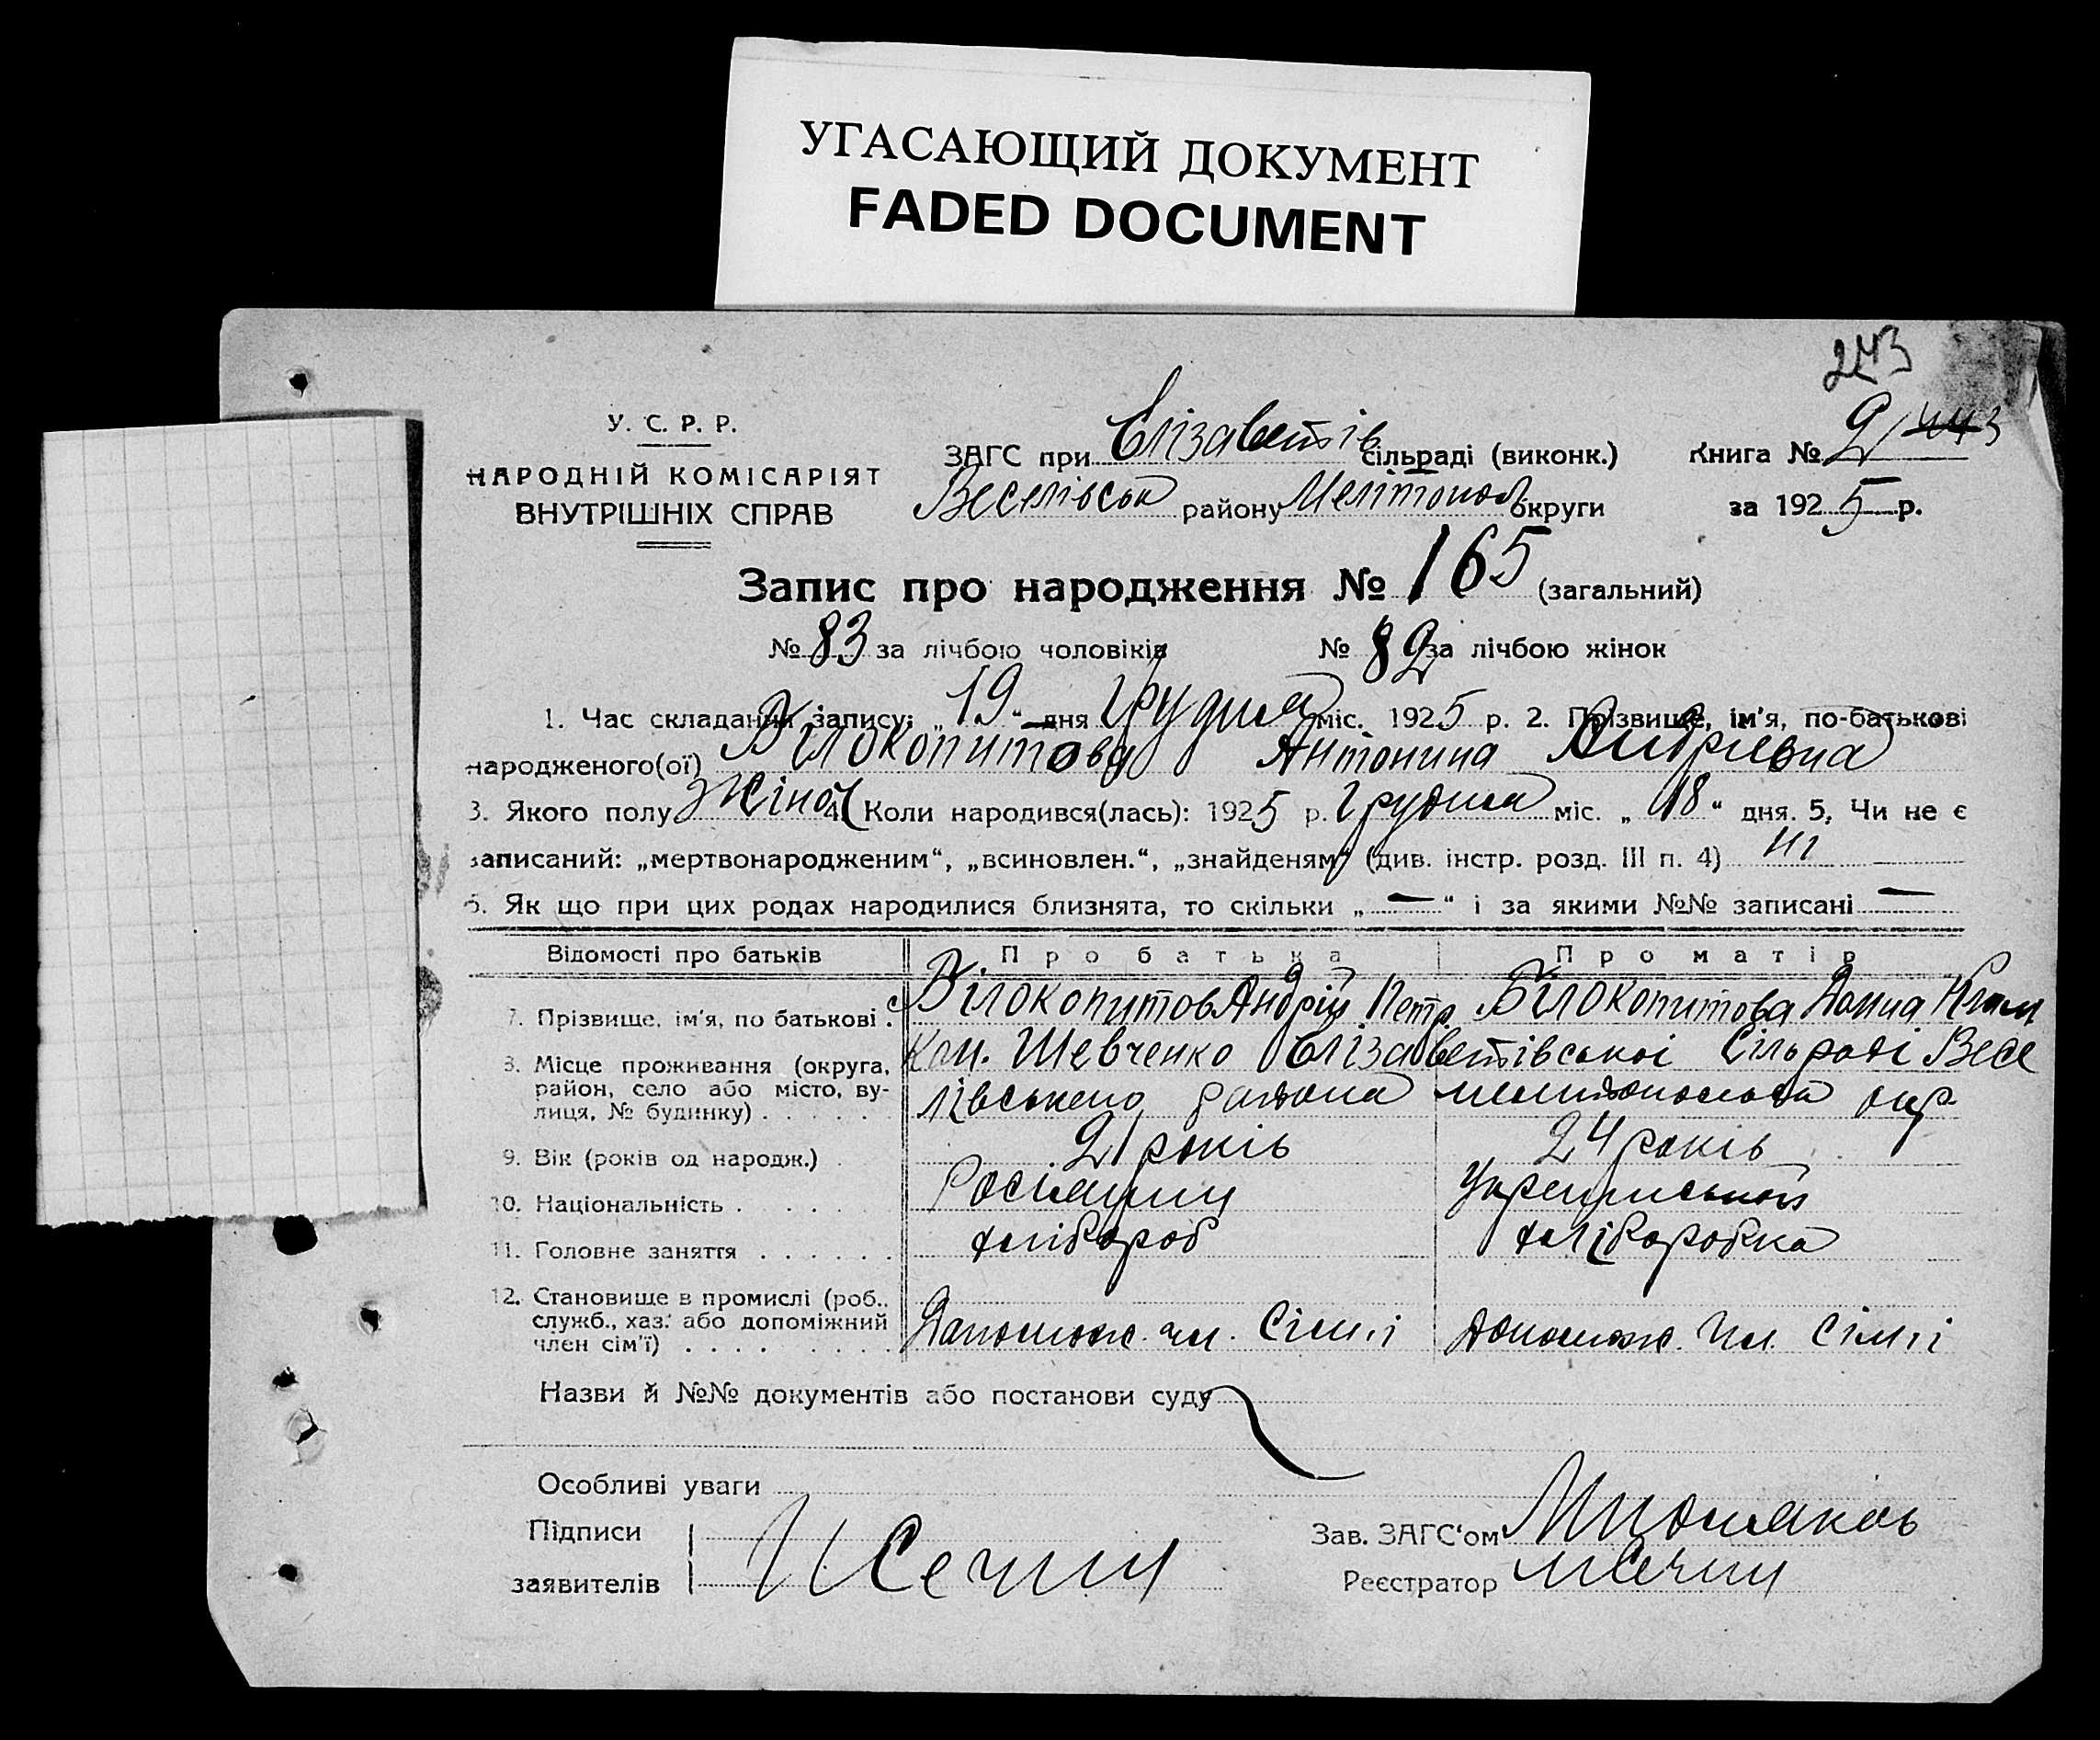 УГАСАЮЩИЙ ДОКУМЕНТ
FADED DOCUMENT
243
У. С. Р. Р.
НАРОДНІЙ КОМІСАРІЯТ
ВНУТРІШНІХ СПРАВ
ЗАГС при Єлізаветів сільраді (виконк.) Книга № 2
Веселівськ району Мелітопол округи за 1925 р.
Запис про народження № 165 (загальний)
№ 83 за лічбою чоловіків № 82 за лічбою жінок
1. Час складання запису: „19“ дня Грудня міс. 1925 р. 2. Прізвище, ім'я, по-батькові
народженого(ої) Білокопитова Антонина Андріевна
3. Якого полу жіноч 4. Коли народився(лась): 1925 р. Грудня міс. „18“ дня. 5, Чи не є
записаний: „мертвонародженим“, „всиновлен.“, „знайденям“ (див. інстр. розд. III п. 4) ні
6. Як що при цих родах народилися близнята, то скільки „—“ і за якими №№ записані —
Відомості про батьків Про батька Про матір
7. Прізвище, ім'я, по батькові . Білокопитов Андрій Петр. Білокопитова Домна
8. Місце проживання (округа, район, село або місто, вулиця, № будинку) . . . . . . Кол. Шевченко Єлізаветівської Сільраді Веселівського района мелітопольськ окр
9. Вік (років од народж.) . 21 років 24 років
10. Національність . . . . . Росіянин Українськой
11. Головне заняття . . . . . . хлібороб хліборобка
12. Становище в промислі (роб., служб., хаз. або допоміжний член сім'ї) . . . . . . . . Допомож. чл. Сімїі допомож. чл. сімїі
Назви й №№ документів або постанови суду
Особливі уваги
Підписи
заявителів
Зав. ЗАГС'ом
Реєстратор